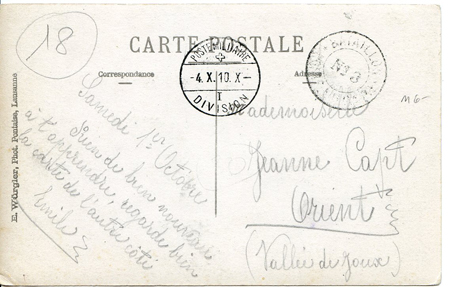 18
CARTE POSTALE
Correspondance
Adresse
E. Würgler, Phot. Pontaise, Lausanne
POSTE MILITAIRE
-4. X. 10. X-
I
DIVISION
Samedi 1er Octobre
Rien de bien nouveau
à t'apprendre, regarde bien
la carte de l'autre côté
Emile
Mademoiselle
Jeanne Capt
Orient
(Vallée de Joux)